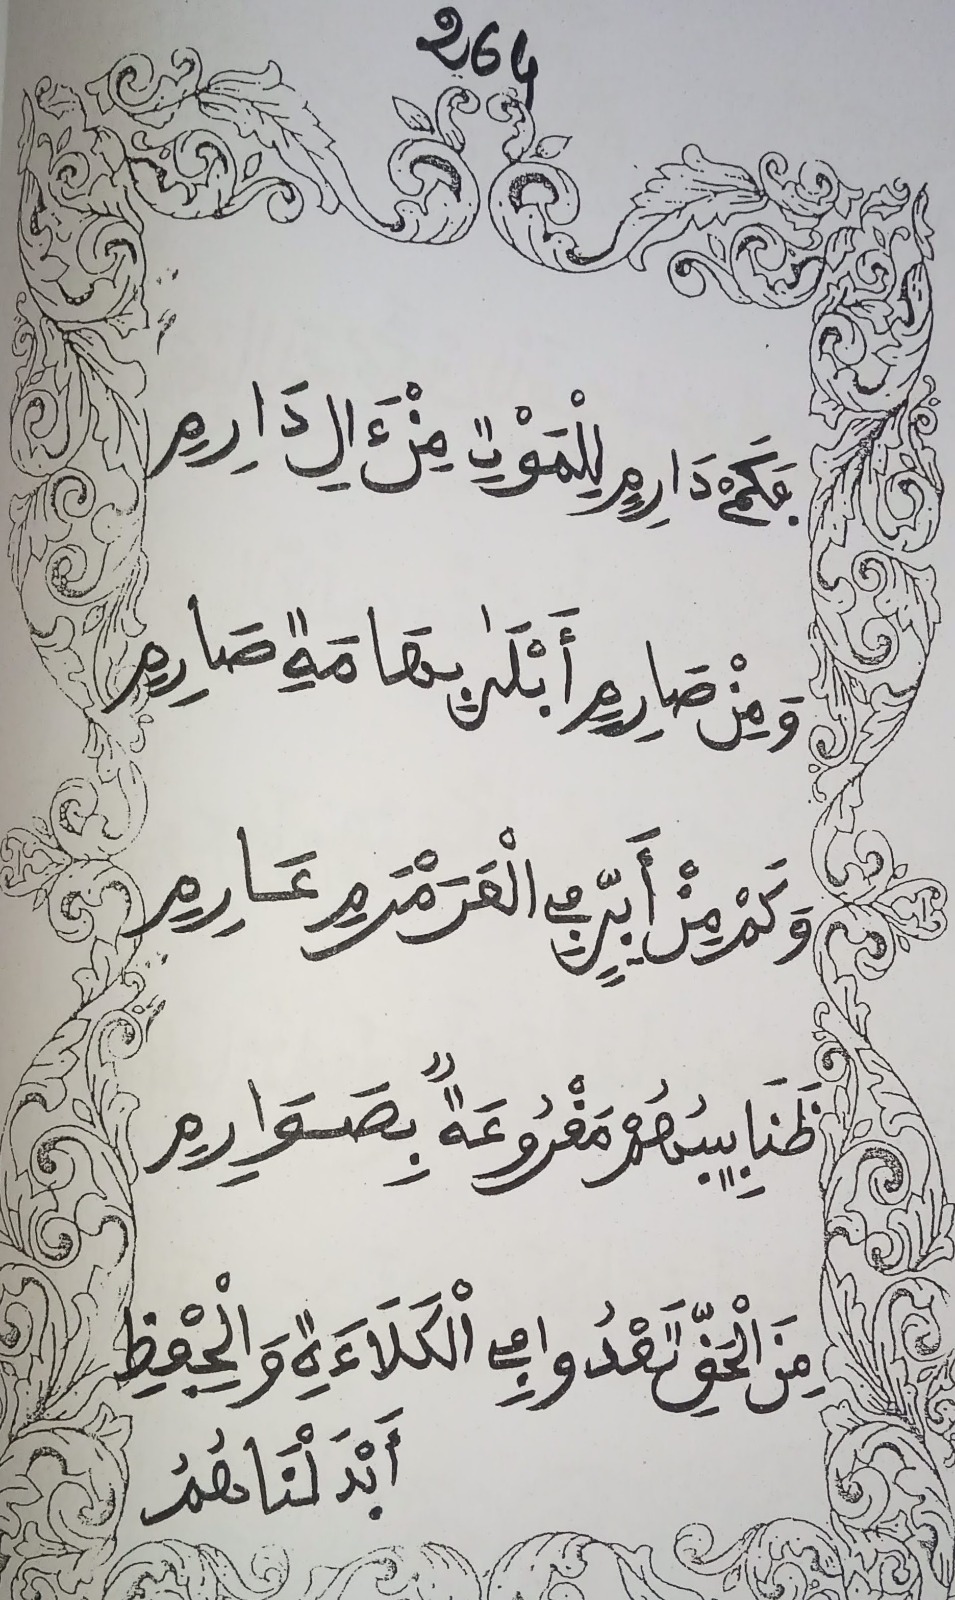 264
فَكَمْ دَارِمٍ لِلْمَوْتِ مِنْ ءَالِ دَارِمِ
وَمِنْ صَارِمٍ أَبْلَىٰ بِهَامَةِ صَارِمِ
وَكَمْ مِنْ أَبِيٍّ فِي الْعَرَمْرَمِ عَارِمِ
ظَنَابِيبُهُمْ مَقْرُوعَةٌ بِصَوَارِمِ
مِنَ الْحَقِّ تَعْدُوا فِي الْكَلَاءَةِ وَالْحِفْظِ
أَبْدَلْنَاهُمُ